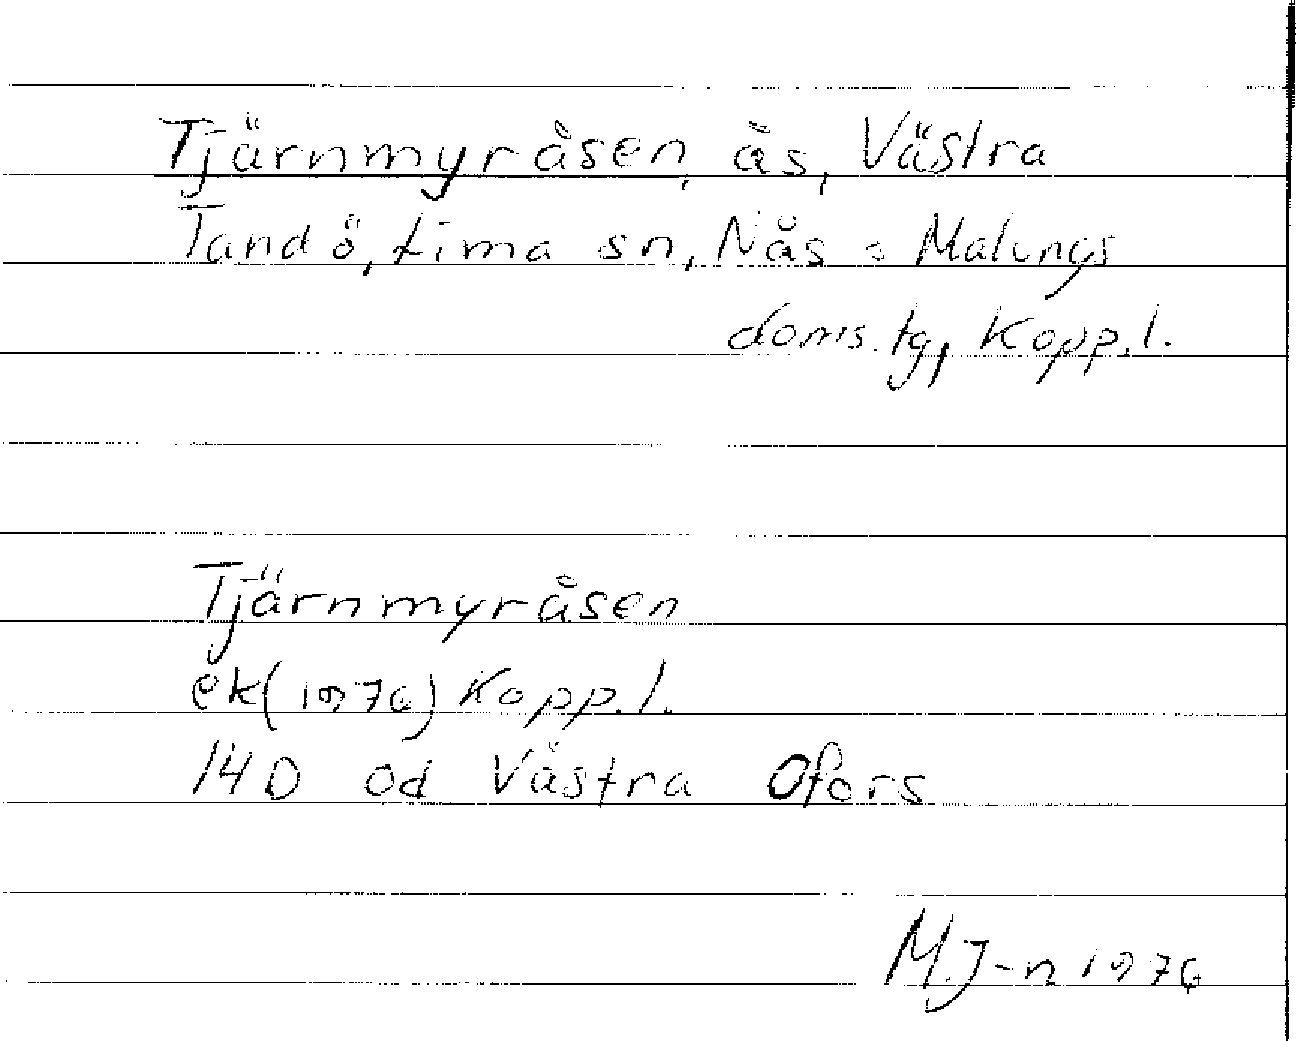 Tjärnmyråsen, ås, Västra
Tandö, Lima sn, Nås o Malungs
doms.tg, Kopp.l.
Tjärnmyråsen
ek(1976) Kopp.l.
14D 0d Västra Ofors
M.J-n 1976